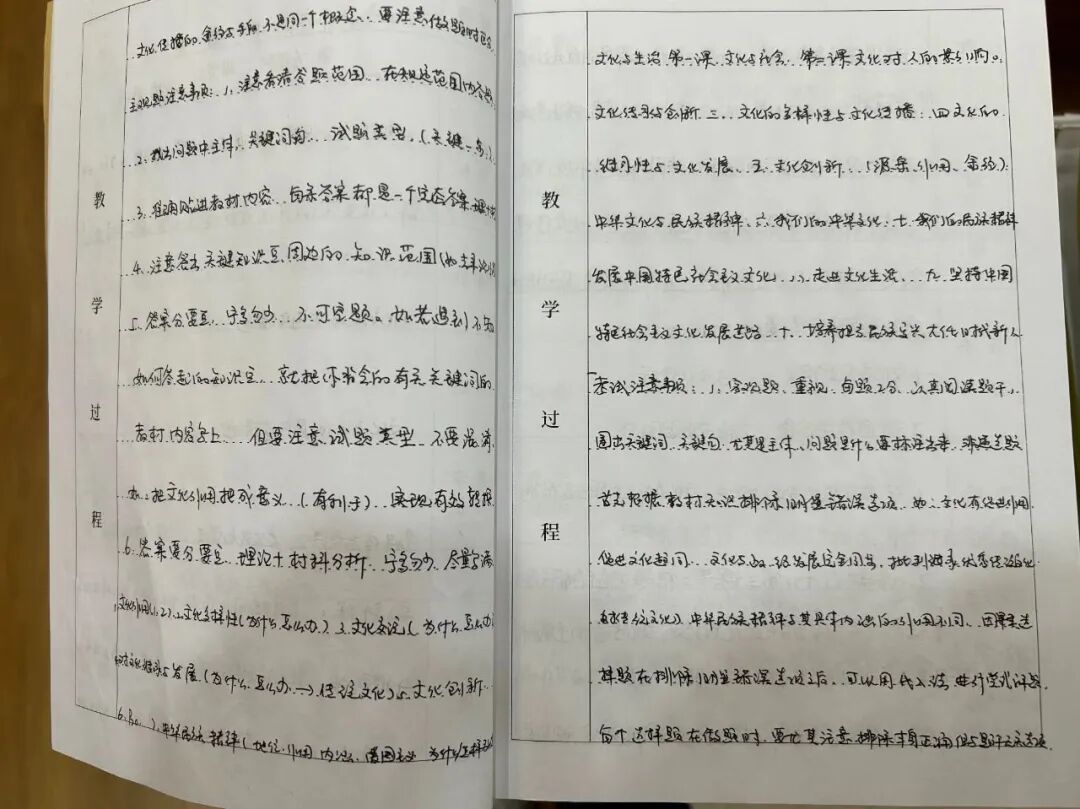 文化传播的途径与手段,不是同一个概念,要注意做题时区分
主观题注意事项:1、注意看清答题范围,在规定范围内答题
2、找出问题中主体,关键词句,试题类型,(关键一步)
3、准确贴近教材内容,每条答案都是一个完整答案
4、注意答出关键知识点周边的知识范围
5、答案分要点,宁多勿少,不可空题。如若遇到不知
如何答起的知识点,就把你背会的有关关键词的
教材内容写上,但要注意试题类型,不要混淆
如:把文化作用把成意义(有利于)
6、答案要分要点,理论+材料分析,宁多勿少,尽量写满
文化作用(1、2)2、文化多样性(为什么、怎么办)3、文化交流(为什么、怎么办
与发展(为什么、怎么办→传统文化)5、文化创新
中华民族精神(地位、作用、内涵、爱国主义
教学过程
文化与生活 第一课 文化与社会 第二课 文化对人的影响。
文化传承与创新 三、文化的多样性与文化传播:四 文化的
继承性与文化发展、五、文化创新(源泉、作用、途径):
中华文化与民族精神、六、我们的中华文化、七、我们的民族精神
发展中国特色社会主义文化、八、走进文化生活 九、坚持中国
特色社会主义文化发展道路 十、培养担当民族复兴大任时代新人
考试注意事项:1、客观题,重视,每题2分,认真阅读题干,
圈出关键词,关键句,尤其是主体,问题是什么要标注出来,
首先根据教材知识排除明显错误选项,如:文化有促进作用,
文化与政、经发展完全同步,批判继承优秀传统文化
传统文化),中华民族精神与其具体内涵的作用不同,
择题在排除明显错误选项之后,可以用代入法进行尝试
每个选择题在做题时,要尤其注意排除本身正确但与题干无关选项
教学过程